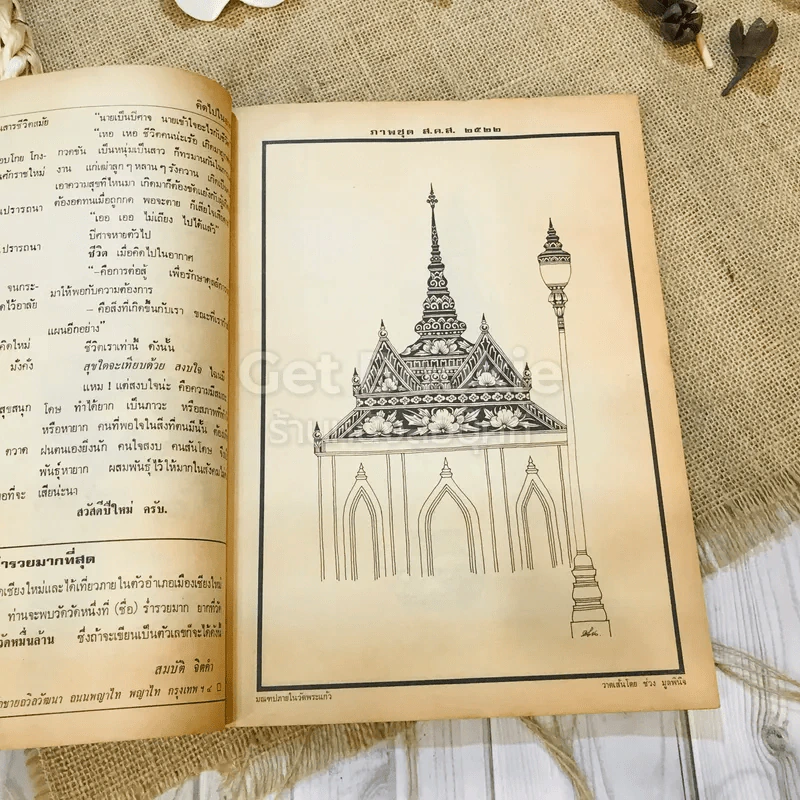 คิดไปใน
สารชีวิตสมัย
"นายเป็นปีศาจ นายเข้าใจอะไรกับชีวิต
"เหอ เหอ ชีวิตคนน่ะเรอะ เกิดมา
โกย โกง- กวดขัน เป็นหนุ่มเป็นสาว ก็ทรมานกัน
ศักราชใหม่ งาน แก่เฒ่าลูก ๆ หลาน ๆ รังควาน
เอาความสุขที่ไหนมา เกิดมาก็ต้องขัดแย้งกับ
ปรารถนา ต้องอดทนเมื่อถูกกด พอจะตาย ก็เสียใจ
"เออ เออ ไม่เถียง ไปได้แล้ว"
ปรารถนา ปีศาจหายตัวไป
ชีวิต เมื่อคิดไปในอากาศ
"–คือการต่อสู้ เพื่อรักษาดุลย์
จนกระ- มาให้พอกับความต้องการ
ไว้อาลัย – คือสิ่งที่เกิดขึ้นกับเรา ขณะที่เรา
แผนอีกอย่าง"
คิดใหม่ ชีวิตเราเท่านี้ ดังนั้น
มั่งคั่ง สุขใดจะเทียบด้วย สงบใจ
แหม ! แต่สงบใจน่ะ คือความมี
สุขสนุก โดษ ทำได้ยาก เป็นภาวะ หรือสภาพที่
หรือหายาก คนที่พอใจในสิ่งที่ตนมีนั้น ต้อง
กวาด ฝนตนเองยิ่งนัก คนใจสงบ คนสันโดษ จึง
พันธุ์หายาก ผสมพันธุ์ไว้ให้มากในสังคม
อที่จะ เสียน่ะนา
สวัสดีปีใหม่ ครับ.
ร่ำรวยมากที่สุด
เชียงใหม่และได้เที่ยวภายในตัวอำเภอเมืองเชียงใหม่
ท่านจะพบวัดวัดหนึ่งที่ (ชื่อ) ร่ำรวยมาก
วัดหมื่นล้าน ซึ่งถ้าจะเขียนเป็นตัวเลขก็จะได้ดังนี้
สมบัติ จิตคำ
ถนนพญาไท พญาไท กรุงเทพ ฯ ๔
ภาพชุด ส.ค.ส. ๒๕๒๒
มณฑปภายในวัดพระแก้ว
วาดเส้นโดย ช่วง มูลพินิจ
Get
ร้าน